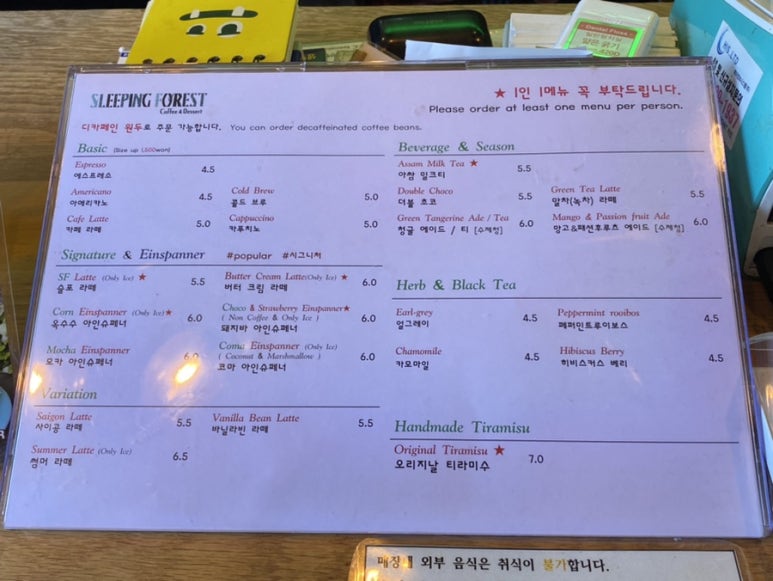 Dental Floss
SLEEPING FOREST
Coffee & Dessert
★ 1인 1메뉴 꼭 부탁드립니다.
Please order at least one menu per person.
디카페인 원두로 주문 가능합니다. You can order decaffeinated coffee beans.
Basic (Size up 1,500won)
Espresso
에스트레소 4.5
Americano
아메리카노 4.5
Cold Brew
콜드 브루 5.0
Cafe Latte
카페 라떼 5.0
Cappuccino
카푸치노 5.0
Signature & Einspanner #popular #시그니처
SF Latte (Only Ice) ★
슬포 라떼 5.5
Butter Cream Latte(Only Ice) ★
버터 크림 라떼 6.0
Corn Einspanner (Only Ice)★
옥수수 아인슈페너 6.0
Choco & Strawberry Einspanner★
( Non Coffee & Only Ice )
돼지바 아인슈페너 6.0
Mocha Einspanner
모카 아인슈페너 6.0
Coma Einspanner (Only Ice)
( Coconut & Marshmallow )
코마 아인슈페너 6.0
Variation
Saigon Latte
사이공 라떼 5.5
Vanilla Bean Latte
바닐라빈 라떼 5.5
Summer Latte (Only Ice)
썸머 라떼 6.5
Beverage & Season
Assam Milk Tea ★
아쌈 밀크티 5.5
Double Choco
더블 초코 5.5
Green Tea Latte
말차(녹차) 라떼 5.5
Green Tangerine Ade / Tea
청귤 에이드 / 티 [수제청] 6.0
Mango & Passion fruit Ade
망고&패션후루츠 에이드 [수제청] 6.0
Herb & Black Tea
Earl-grey
얼그레이 4.5
Peppermint rooibos
페퍼민트루이보스 4.5
Chamomile
카모마일 4.5
Hibiscus Berry
히비스커스 베리 4.5
Handmade Tiramisu
Original Tiramisu ★
오리지날 티라미수 7.0
매장내 외부 음식은 취식이 불가합니다.